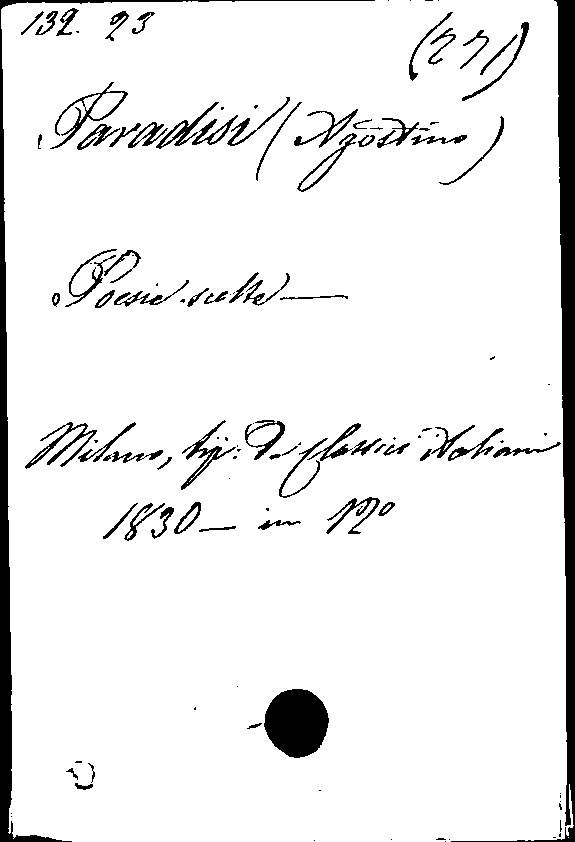 132. 23
(271)
Paradisi (Agostino)
Poesie scelte —
Milano, tip: De Classici italiani
1830 — in 12º